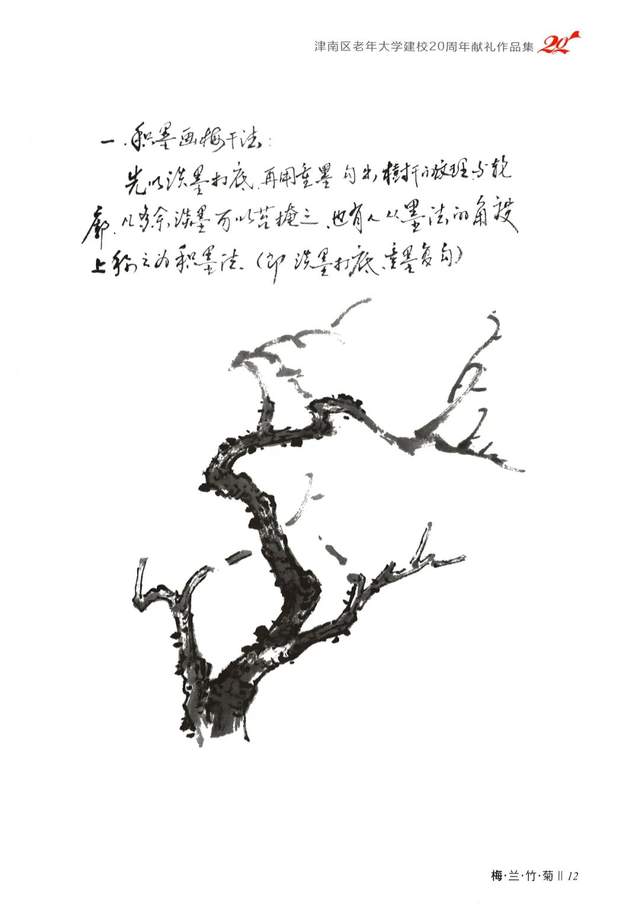 津南区老年大学建校20周年献礼作品集 20
一.积墨画梅干法:
先以淡墨打底,再用重墨勾出樹干的纹理与轮
廓.凡多余淡墨可以苔掩之.也有人从墨法的角度
上称之为积墨法.(即淡墨打底,重墨复勾)
梅·兰·竹·菊 || 12